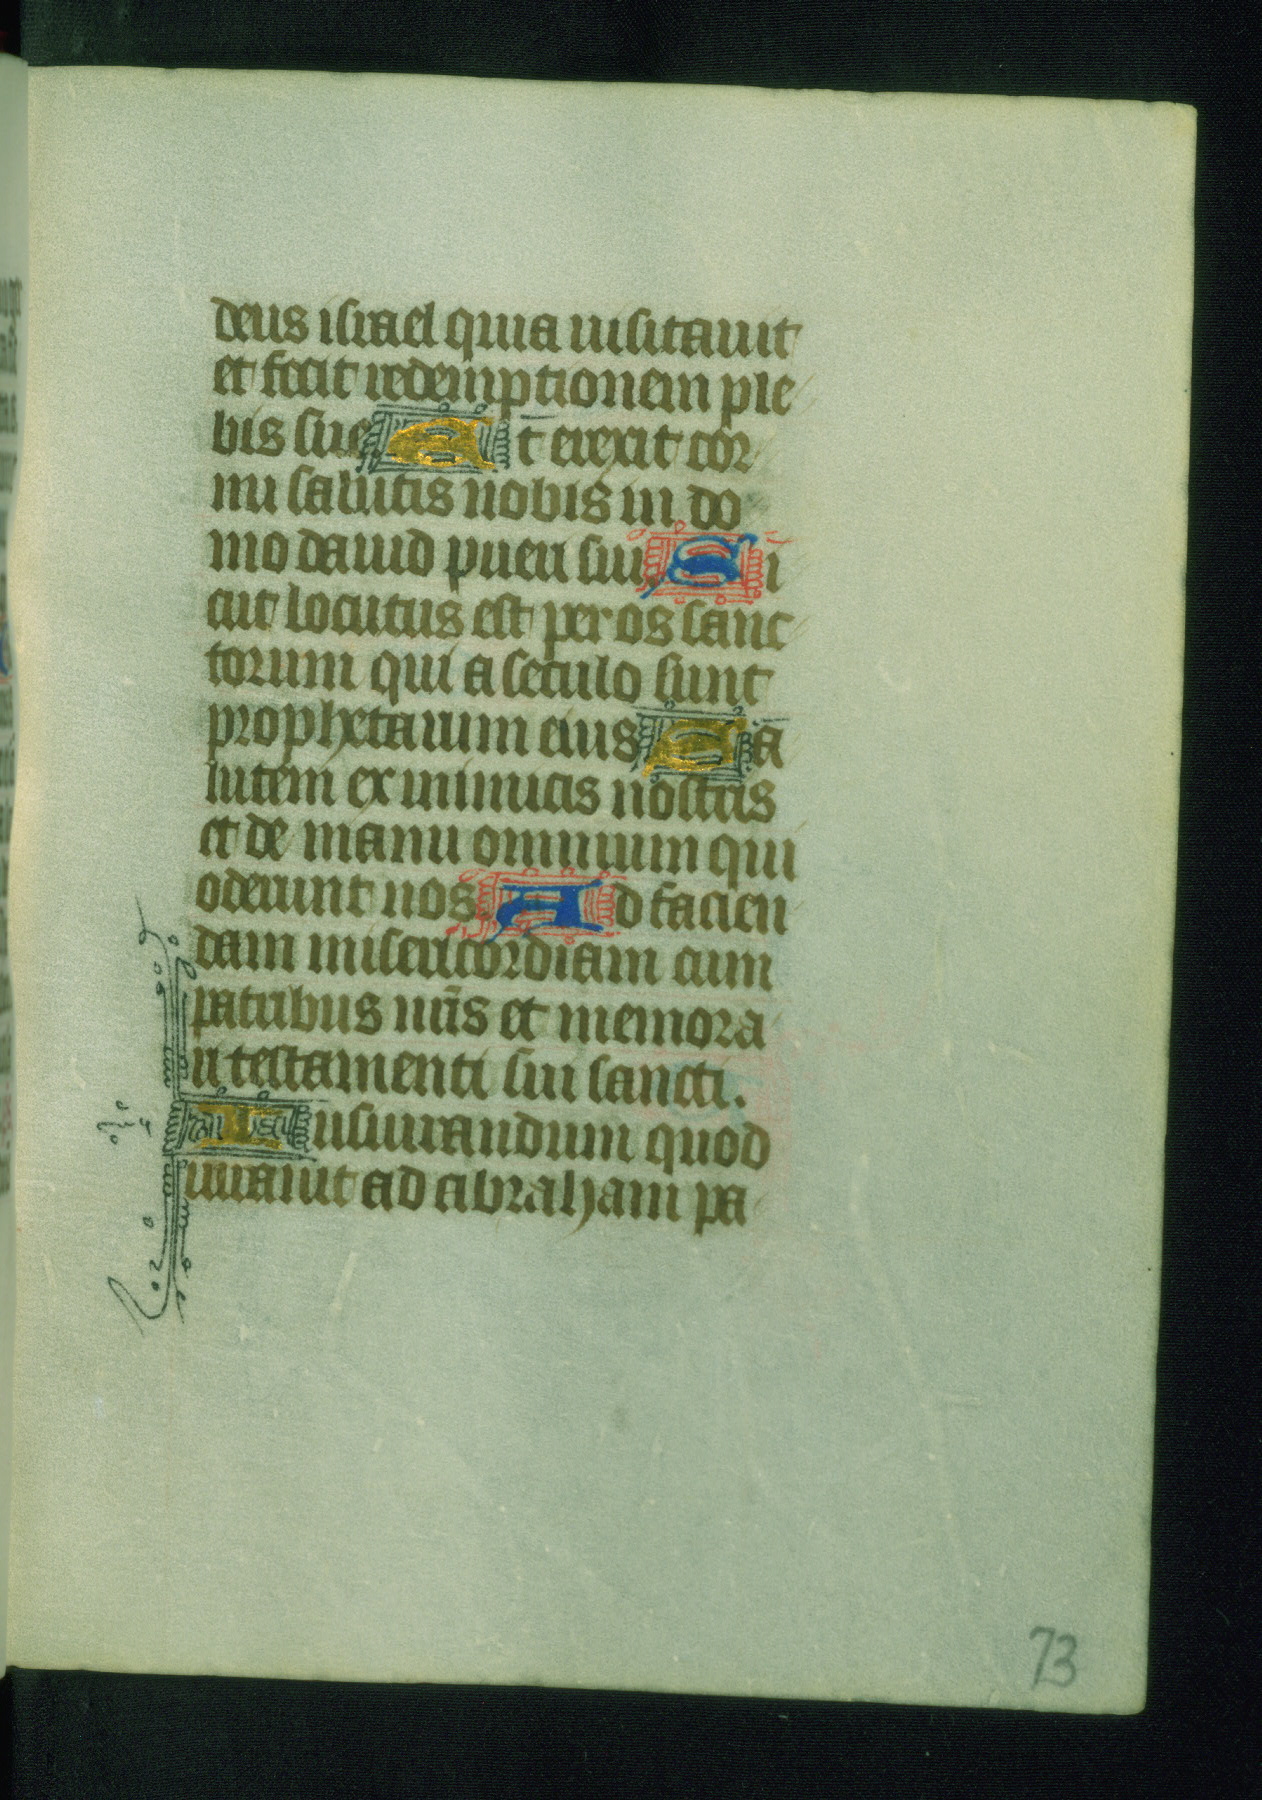 deus israel quia uisitauit
et fecit redemptionem ple
bis sue Et erexit cor
nu salutis nobis in do
mo dauid pueri sui Si
cut locutus est per os sanc
torum qui a seculo sunt
prophetarum eius Sa
lutem ex inimicis nostris
et de manu omnium qui
oderunt nos Ad facien
dam misericordiam cum
patribus nr̄is et memora
ri testamenti sui sancti.
Iusiurandum quod
iurauit ad abraham pa
73